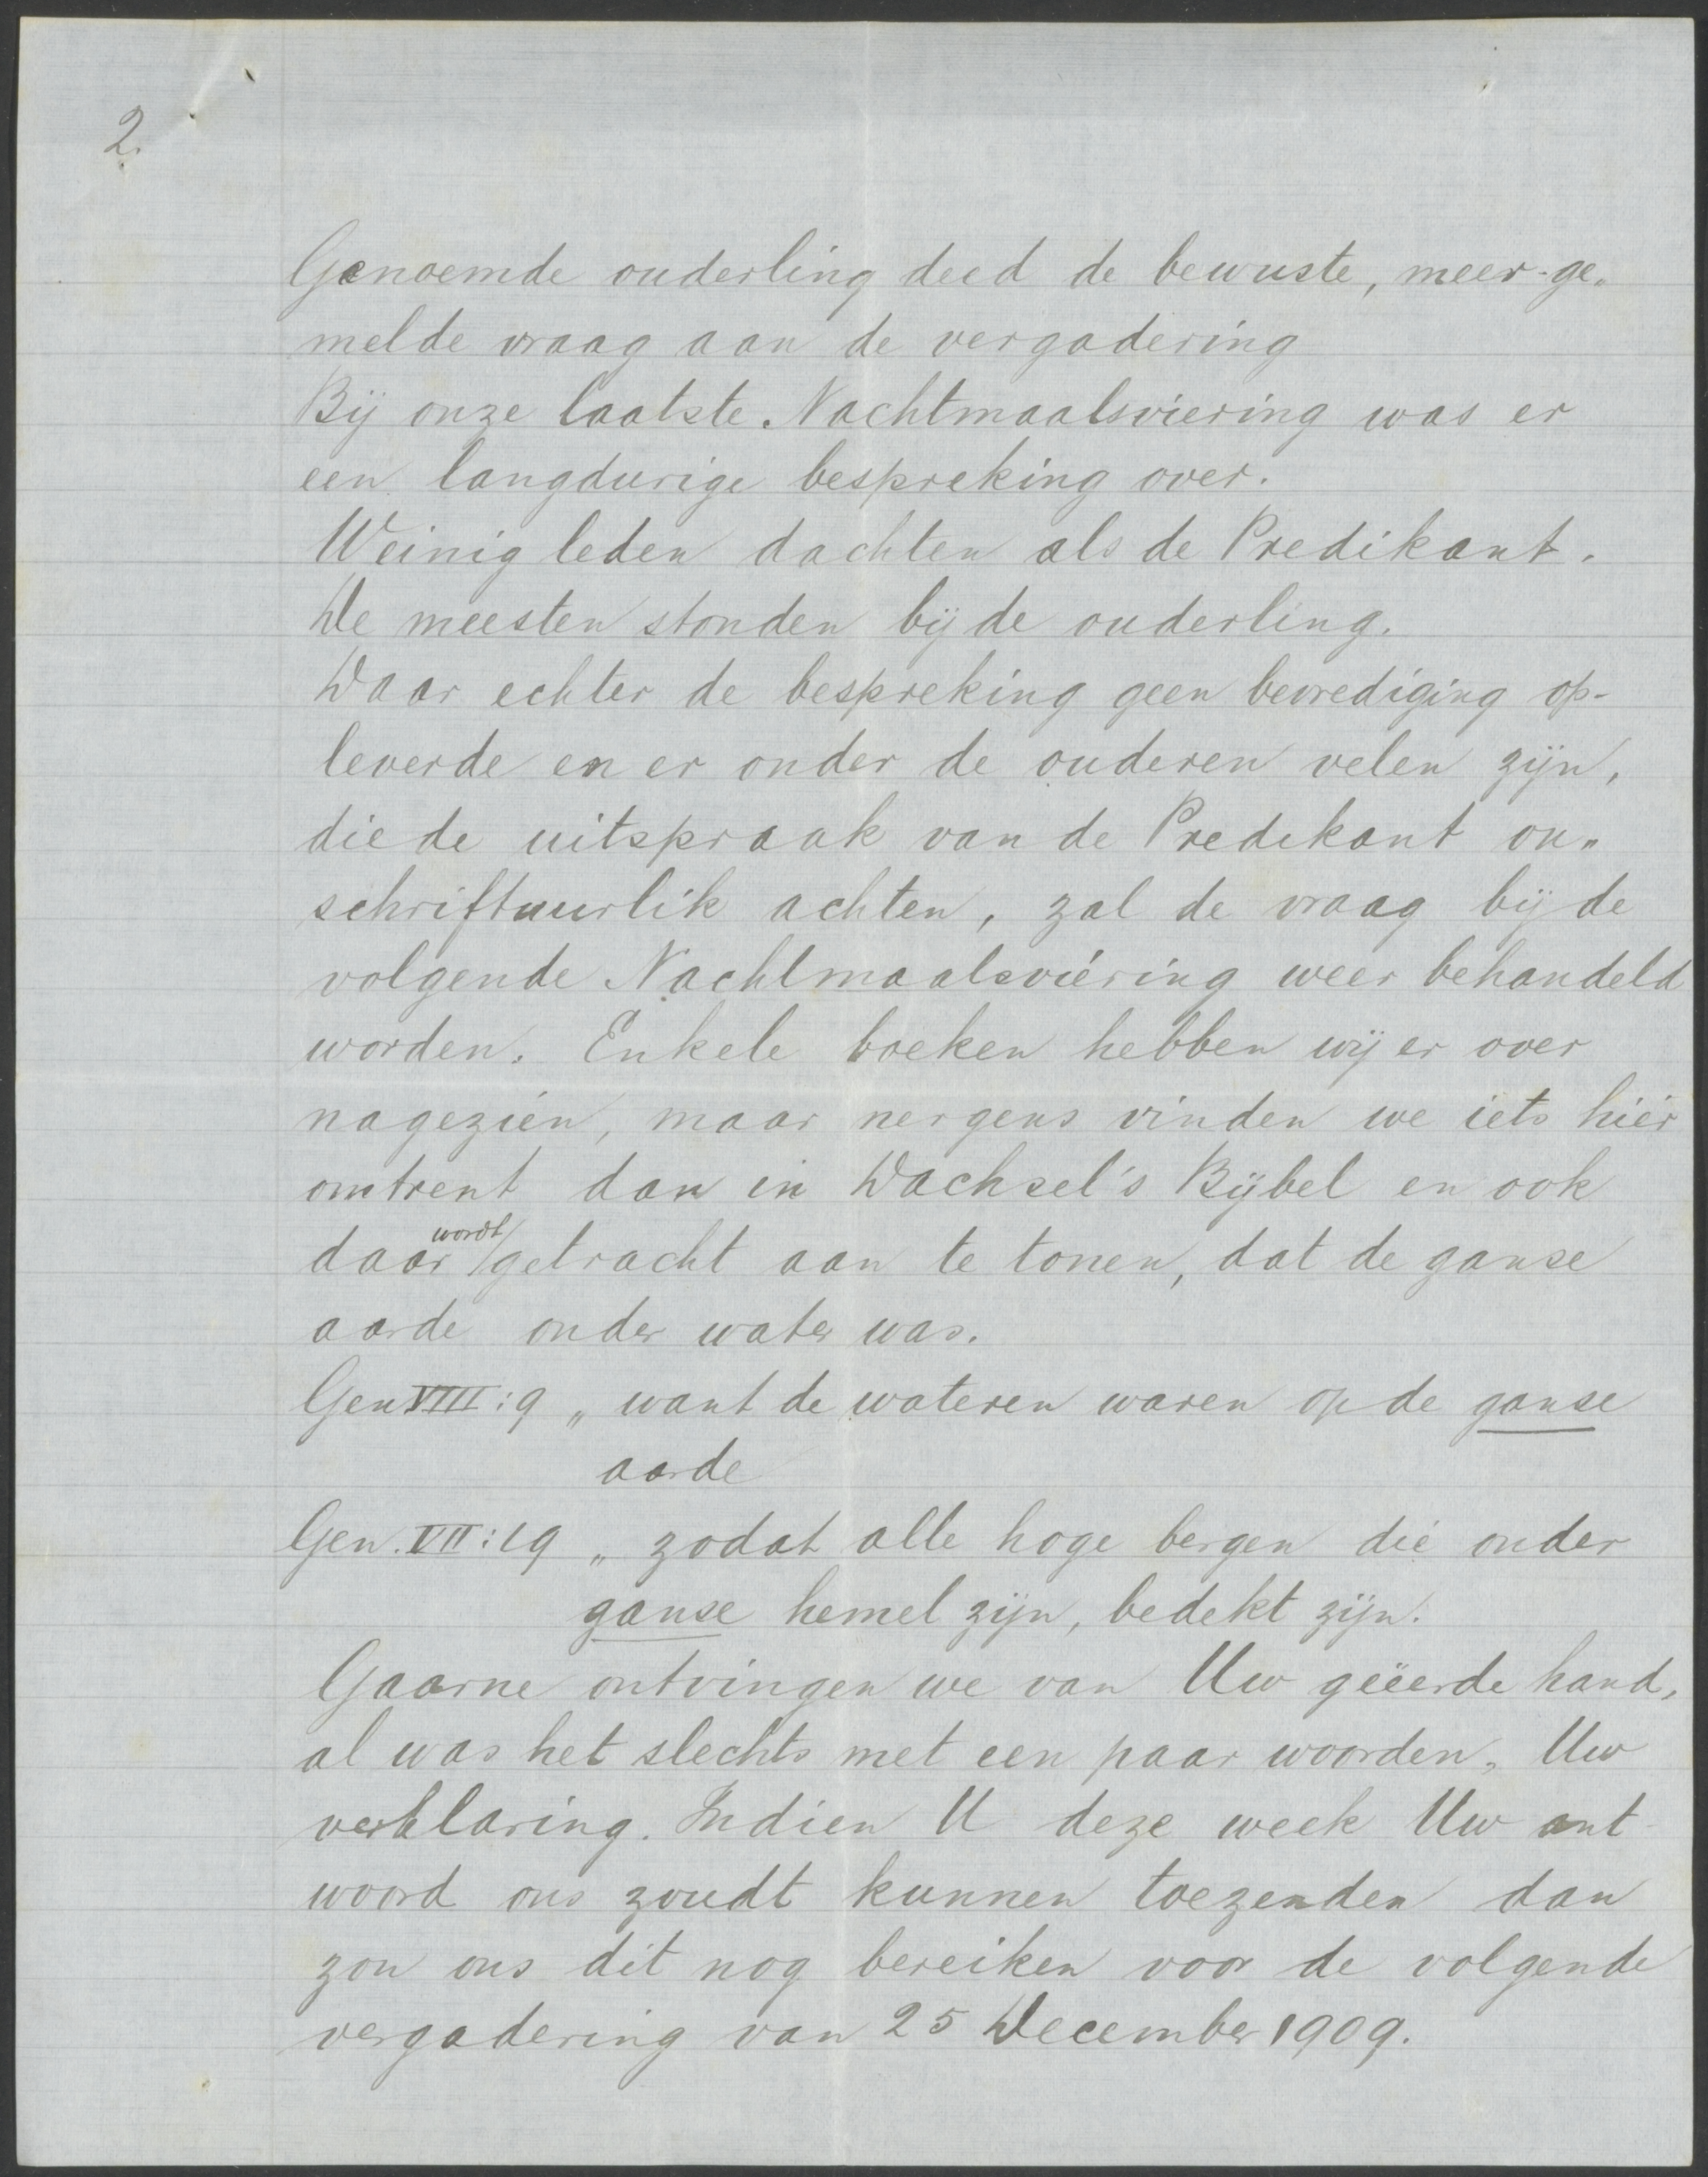 2.
Genoemde ouderling deed de bewuste, meer-ge„
melde vraag aan de vergadering
Bij onze laatste Nachtmaalsviering was er
een langdurige bespreking over.
Weinig leden dachten als de Predikant.
De meesten stonden bij de ouderling.
Daar echter de bespreking geen bevrediging op-
leverde en er onder de ouderen velen zijn,
die de uitspraak van de Predikant on„
schriftuurlik achten, zal de vraag bij de
volgende Nachtmaalsviering weer behandeld
worden. Enkele boeken hebben wij er over
nagezien, maar nergens vinden we iets hier
omtrent dan in Dachsel's Bijbel en ook
daar wordt getracht aan te tonen, dat de ganse
aarde onder water was.
Gen VIII:9 „ want de wateren waren op de ganse
aarde
Gen. VII:19 „ zodat alle hoge bergen die onder
ganse hemel zijn, bedekt zijn.
Gaarne ontvingen we van Uw geëerde hand,
al was het slechts met een paar woorden, Uw
verklaring. Indien U deze week Uw ant-
woord ons zoudt kunnen toezenden dan
zou ons dit nog bereiken voor de volgende
vergadering van 25 December 1909.